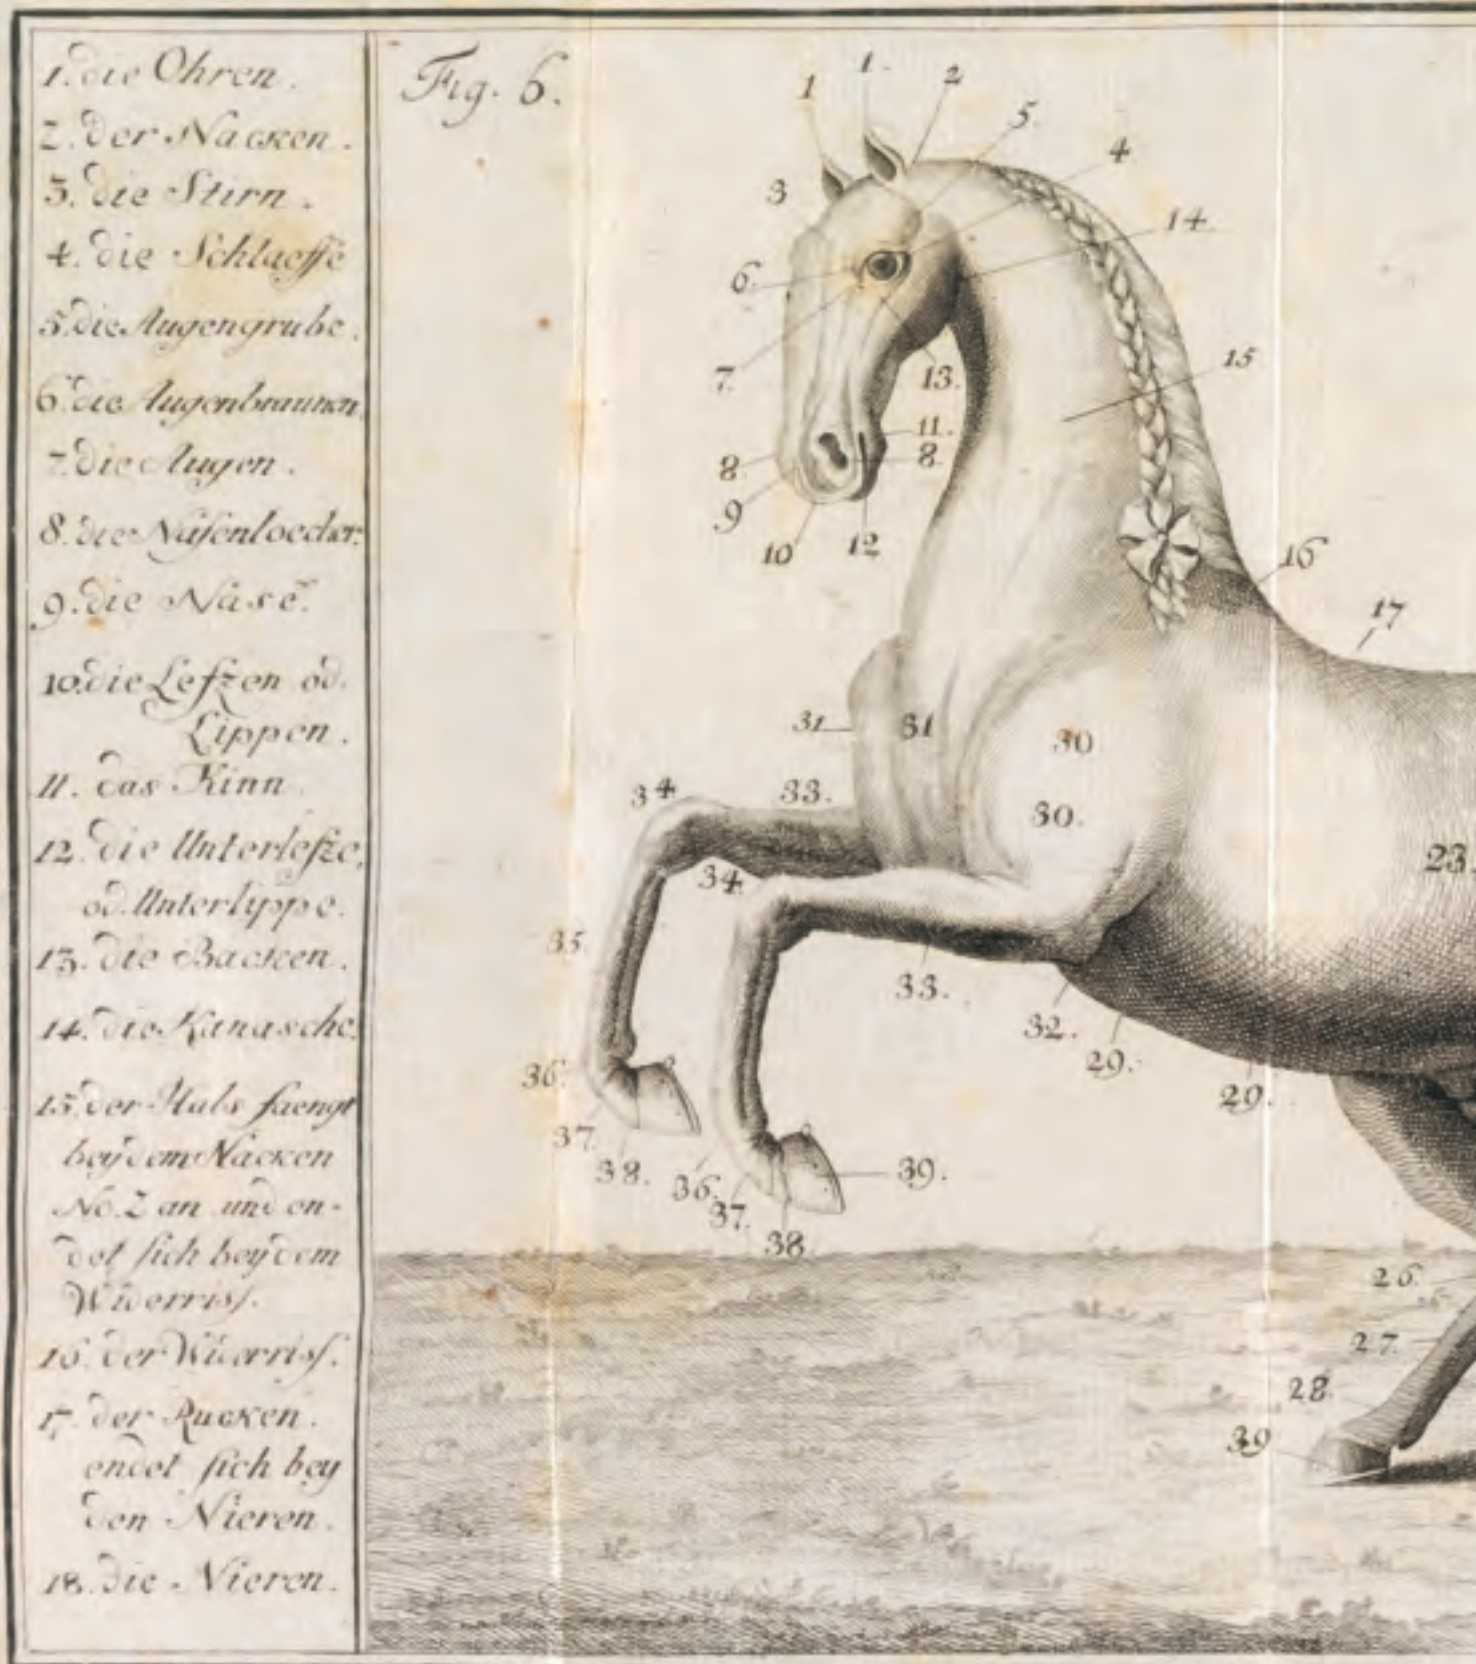 1. die Ohren.
2. der Nacken.
3. die Stirn.
4. die Schlaeffe
5. die Augengrube.
6. die Augenbraunen
7. die Augen.
8. die Nasenloecher.
9. die Nase.
10. die Lefzen od.
Lippen.
11. das Kinn
12. die Unterlefze,
od. Unterlippe.
13. die Backen.
14. die Kanasche.
15. der Hals faengt
bey dem Nacken
No. 2 an und en-
det sich bey dem
Widerriss.
16. der Widerriss.
17. der Rucken.
endet sich bey
den Nieren.
18. die Nieren.
Fig. 6.
1
1.
2
5.
4
3
14.
6.
15
7.
13.
11.
8
8.
9
10
12
16
17
31
31
30
34
33.
30.
23.
34.
35
33.
32.
29.
36.
29.
37.
38.
36.
39.
37.
38
26.
27.
28.
39